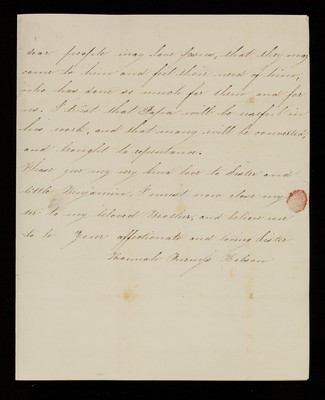 dear people may love Jesus, that they may
come to him and feel their need of him,
who has done so much for them and for
us. I trust that Papa will be useful in
his work, and that many will be converted,
and brought to repentance.
Please give my very kind love to Sister and
little Benjamin. I must now close my
to my beloved Mother, and believe me
to be Your affectionate and loving Sister
Hannah